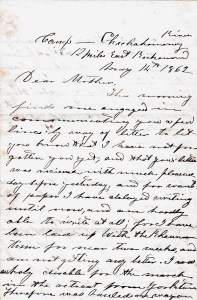 Camp – Chickahominy River
12 miles East Richmond
May 14th 1862
Dear Mother,
This morning
finds me engaged in
communicating you a few
lines by way of letter to let
you know that I have not for-
gotten you yet, and that your letter
was received with much pleasure
day before yesterday, and for want
of paper I have delayed writing
until now, and am hardly
able to write at all, for I have
been laid up with the Rheuma-
tism for near two weeks, and
am not getting any better. I was
wholy unable for the march
on the retreat from Yorktown
therefore was hauled in a wagon